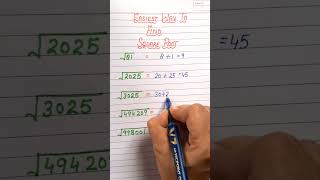 Easiest Way To
Find
Square Root
√2025 = 45
√81 = 8 + 1 = 9
√2025 = 20 + 25 = 45
√3025 = 30+2
√494209 =
√998001
√49420